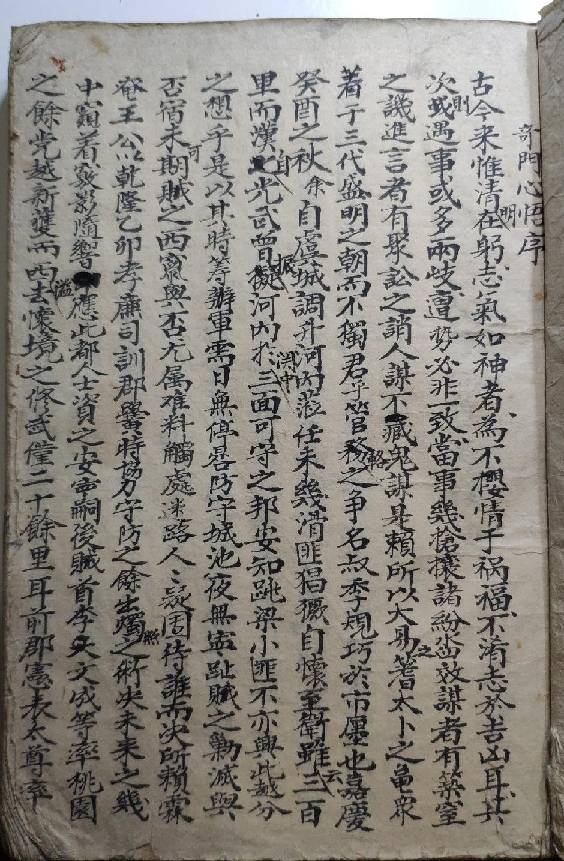 奇門心悟序
明
古今来惟清在躬志氣如神者為不櫻情于祸福不淆志於吉凶耳其
次或遇事或多兩岐遭勢必非一致當事幾搶攘諸紛沓效謀者有築室
則
之譏進言者有聚訟之誚人謀不臧鬼謀是賴所以大易著太卜之龜衆
之
着于三代盛明之朝而不獨君子管務之争名叔季規巧於市屢也嘉慶
輅
癸酉之秋余自虞城調升河内蒞任未幾滑匪猖獗自懷至衛雖三百
云
里而漢之光武曾擬河内於三面可守之邦安知跳梁小匪不亦興此越分
自
振
之想乎是以其時筹辦軍需日無停晷防守城池夜無寍趾贼之勦滅與
否宿未期贼之西竄與否尤属难料觸處迷路人〻疑团待誰而决所頼霖
可
菴王公以乾隆乙卯孝廉司訓郡黌時協力守防之餘出燭之術决未来之幾
照
中窾着窽影随響應此都人士資之安寍嗣後贼首李文成等率桃園
之餘党越新蒦而西去懷境之修武僅二十餘里耳前郡憲表太尊率